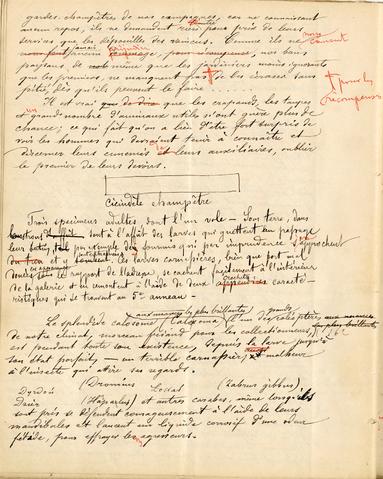 gardes champêtres de nos campagnes, car ne connaissant
aucun repos, ils ne demandent rien pour prix de leurs
services que la dépouille des vaincus. Comme ils ne
jamais nos
paysans de même que les jardiniers moins ignorants
que les premiers, ne manquent pas de les écraser sans
pitié, dès qu'ils peuvent le faire
† pour les
récompenser
Il est vrai que les crapauds, les taupes
et grand nombre d'animaux utiles n'ont guère plus de
chance; ce qui fait qu'on a lieu d'être fort surpris de
voir les hommes qui devraient tenir à connaître et
discerner leurs ennemis et leurs auxiliaires, oublier
le premier de leurs devoirs.
Cicindèle champêtre
Trois specimens adultes dont l'un vole — Sous terre, dans
sont à l'affût des larves qui guettent au passage
leur butin, tel par exemple des fourmis qui par imprudence s'approchent
et y tombent larves carnières, bien que fort mal
le rapport de l'adresse, se cachent facilement à l'intérieur
de la galerie et en remontent à l'aide de deux crochets
qui se trouvent au 5e anneau —
aux nuances les plus brillantes
Le splendide calosome (Calosoma) l'un des grands coléoptères
de notre climat, morceau friand pour les collectionneurs,
est pendant toute son existence, depuis la larve jusqu'à
son état parfait, — un terrible carnassier, malheur
à l'insecte qui attire ses regards.
(Dromius (Zabrus gibbus)
(Harpalus) et autres carabes, même lorsqu'ils
sont pris se défendent courageusement à l'aide de leurs
mandibules et lancent un liquide corrosif d'une odeur
fétide, pour effrayer les agresseurs.